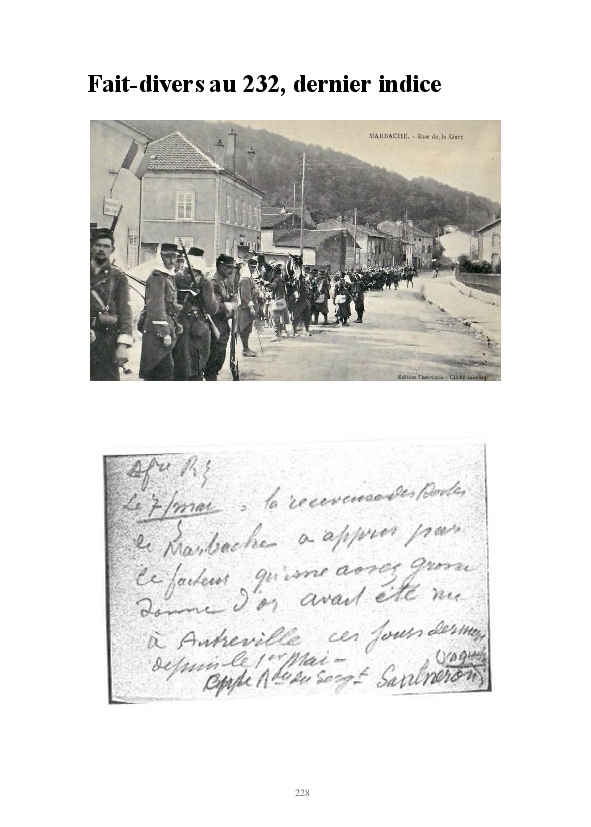 Fait-divers au 232, dernier indice
MARBACHE. - Rue de la Gare
Edition Thouvenin - Cliché
Affre R
Le 7/mai = la receveuse des Postes
de Marbache a appris par
le facteur qu'une assez grosse
somme d'or avait été vu
à Autreville ces jours derniers
depuis le 1er Mai - (vague
du Sergt
228